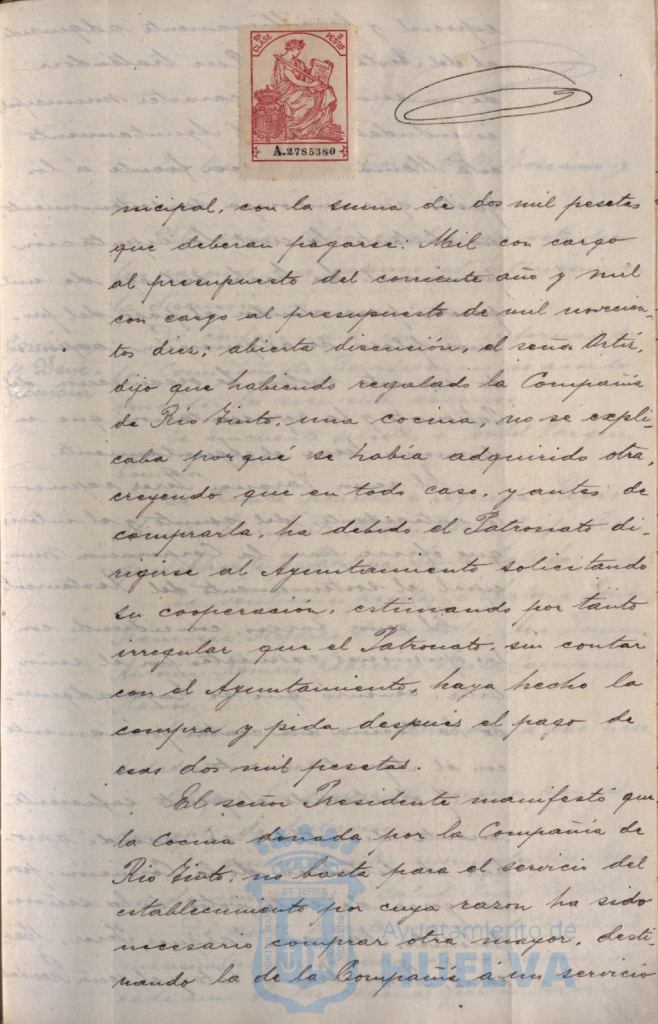 10ª CLASE
2 PESOS
A.2785380
nicipal, con la suma de dos mil pesetas
que deberan pagarse: Mil con cargo
al presupuesto del corriente año y mil
con cargo al presupuesto de mil novecien-
tos diez; abierta discusión, el señor Ortiz,
dijo que habiendo regalado la Compañia
de Rio Tinto, una cocina, no se expli-
caba porqué se había adquirido otra,
creyendo que en todo caso, y antes de
comprarla, ha debido el Patronato di-
rigirse al Ayuntamiento solicitando
su cooperación, estimando por tanto
irregular que el Patronato, sin contar
con el Ayuntamiento, haya hecho la
compra y pida despues el pago de
esas dos mil pesetas.
El señor Presidente manifestó que
la Cocina donada por la Compañia de
Rio Tinto, no basta para el servicio del
establecimiento por cuya razon ha sido
necesario comprar otra mayor, desti-
nando la de la Compañia á un servicio
Ayuntamiento de
HUELVA